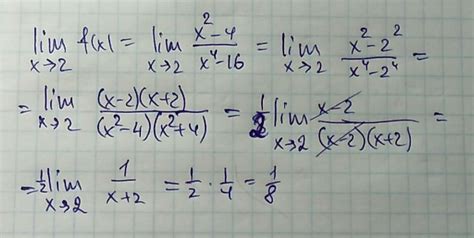 lim x→2 f(x) = lim x→2 (x²-4)/(x⁴-16) = lim x→2 (x²-2²)/(x⁴-2⁴) =
= lim x→2 ((x-2)(x+2))/((x²-4)(x²+4)) = 1/2 lim x→2 (x-2)/((x-2)(x+2)) =
= 1/2 lim x→2 1/(x+2) = 1/2 · 1/4 = 1/8